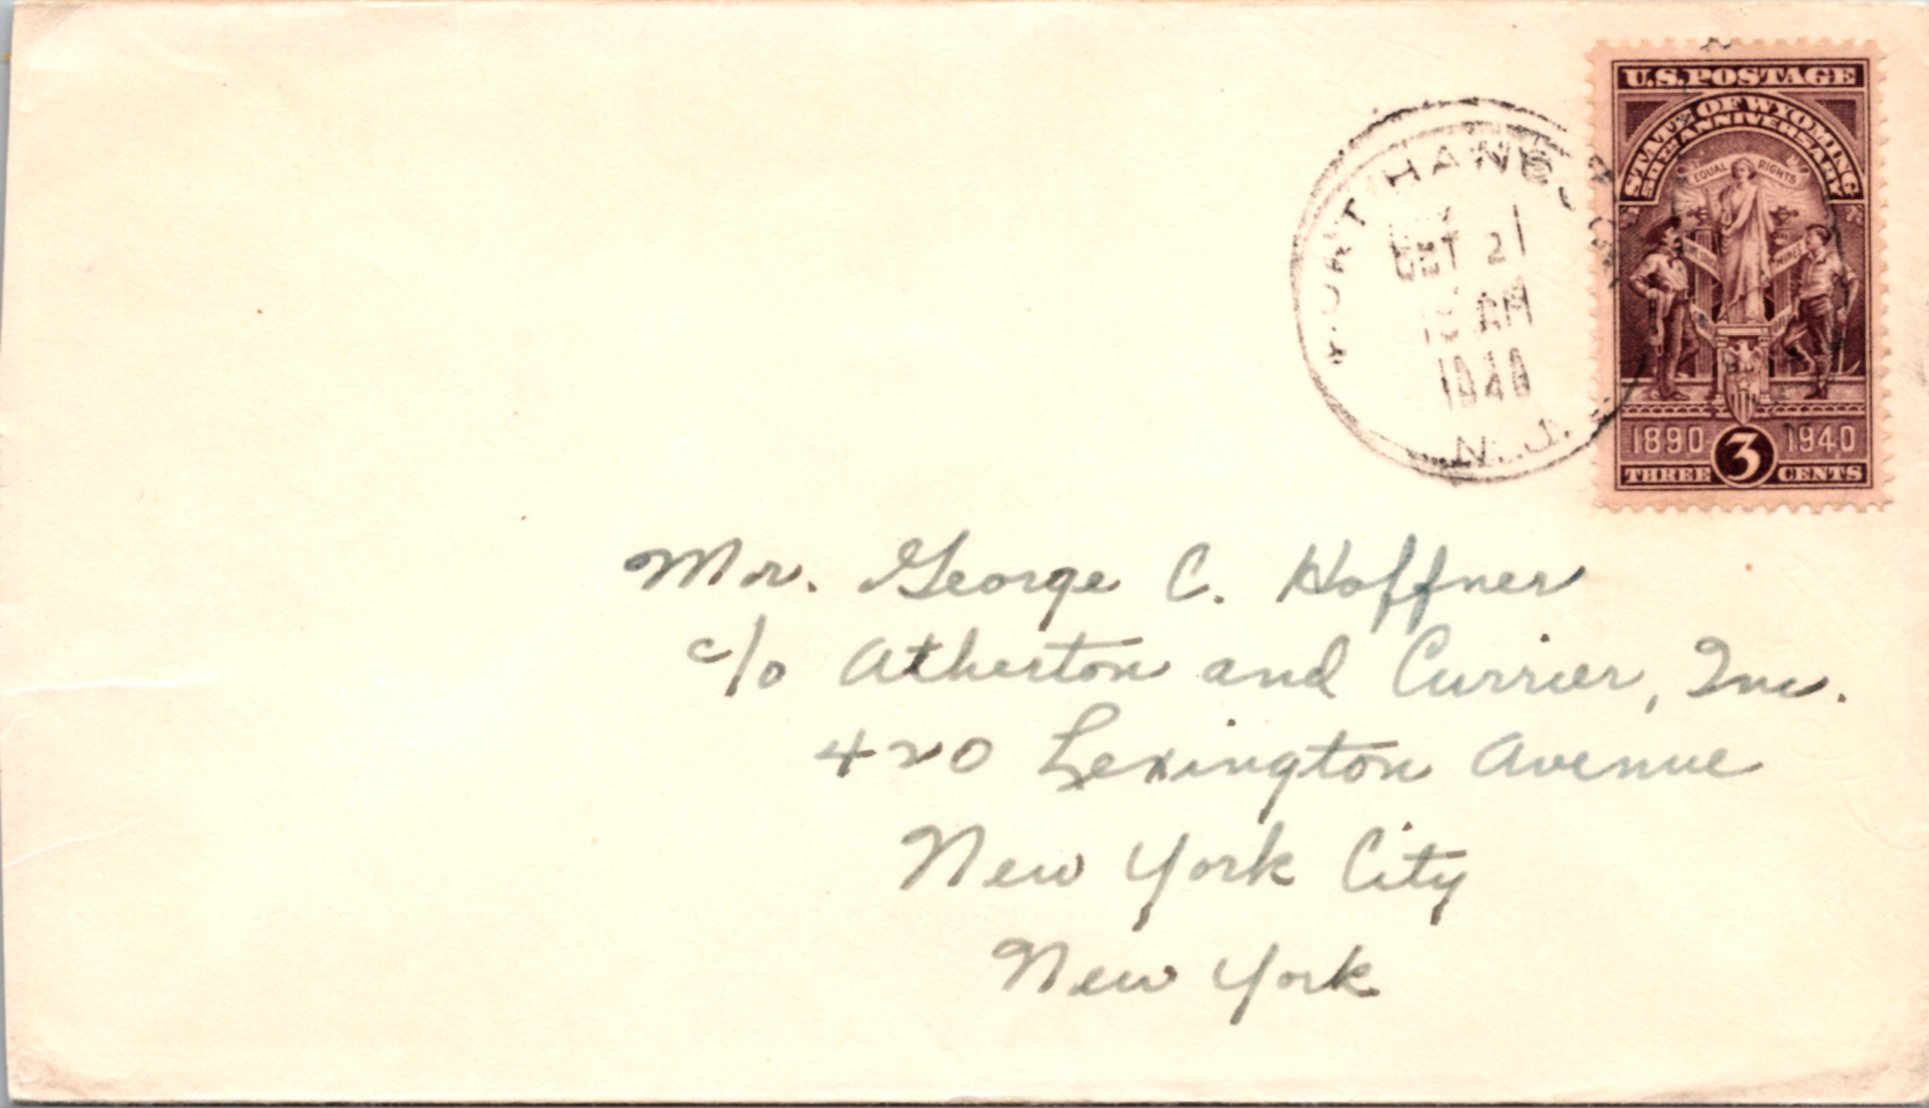 U.S. POSTAGE
STATE OF WYOMING
50TH ANNIVERSARY
EQUAL RIGHTS
1890 1940
THREE 3 CENTS
PORT
OCT 21
AM
1940
N.J.
Mr. George C. Hoffner
c/o Atherton and Currier, Inc.
420 Lexington Avenue
New York City
New York